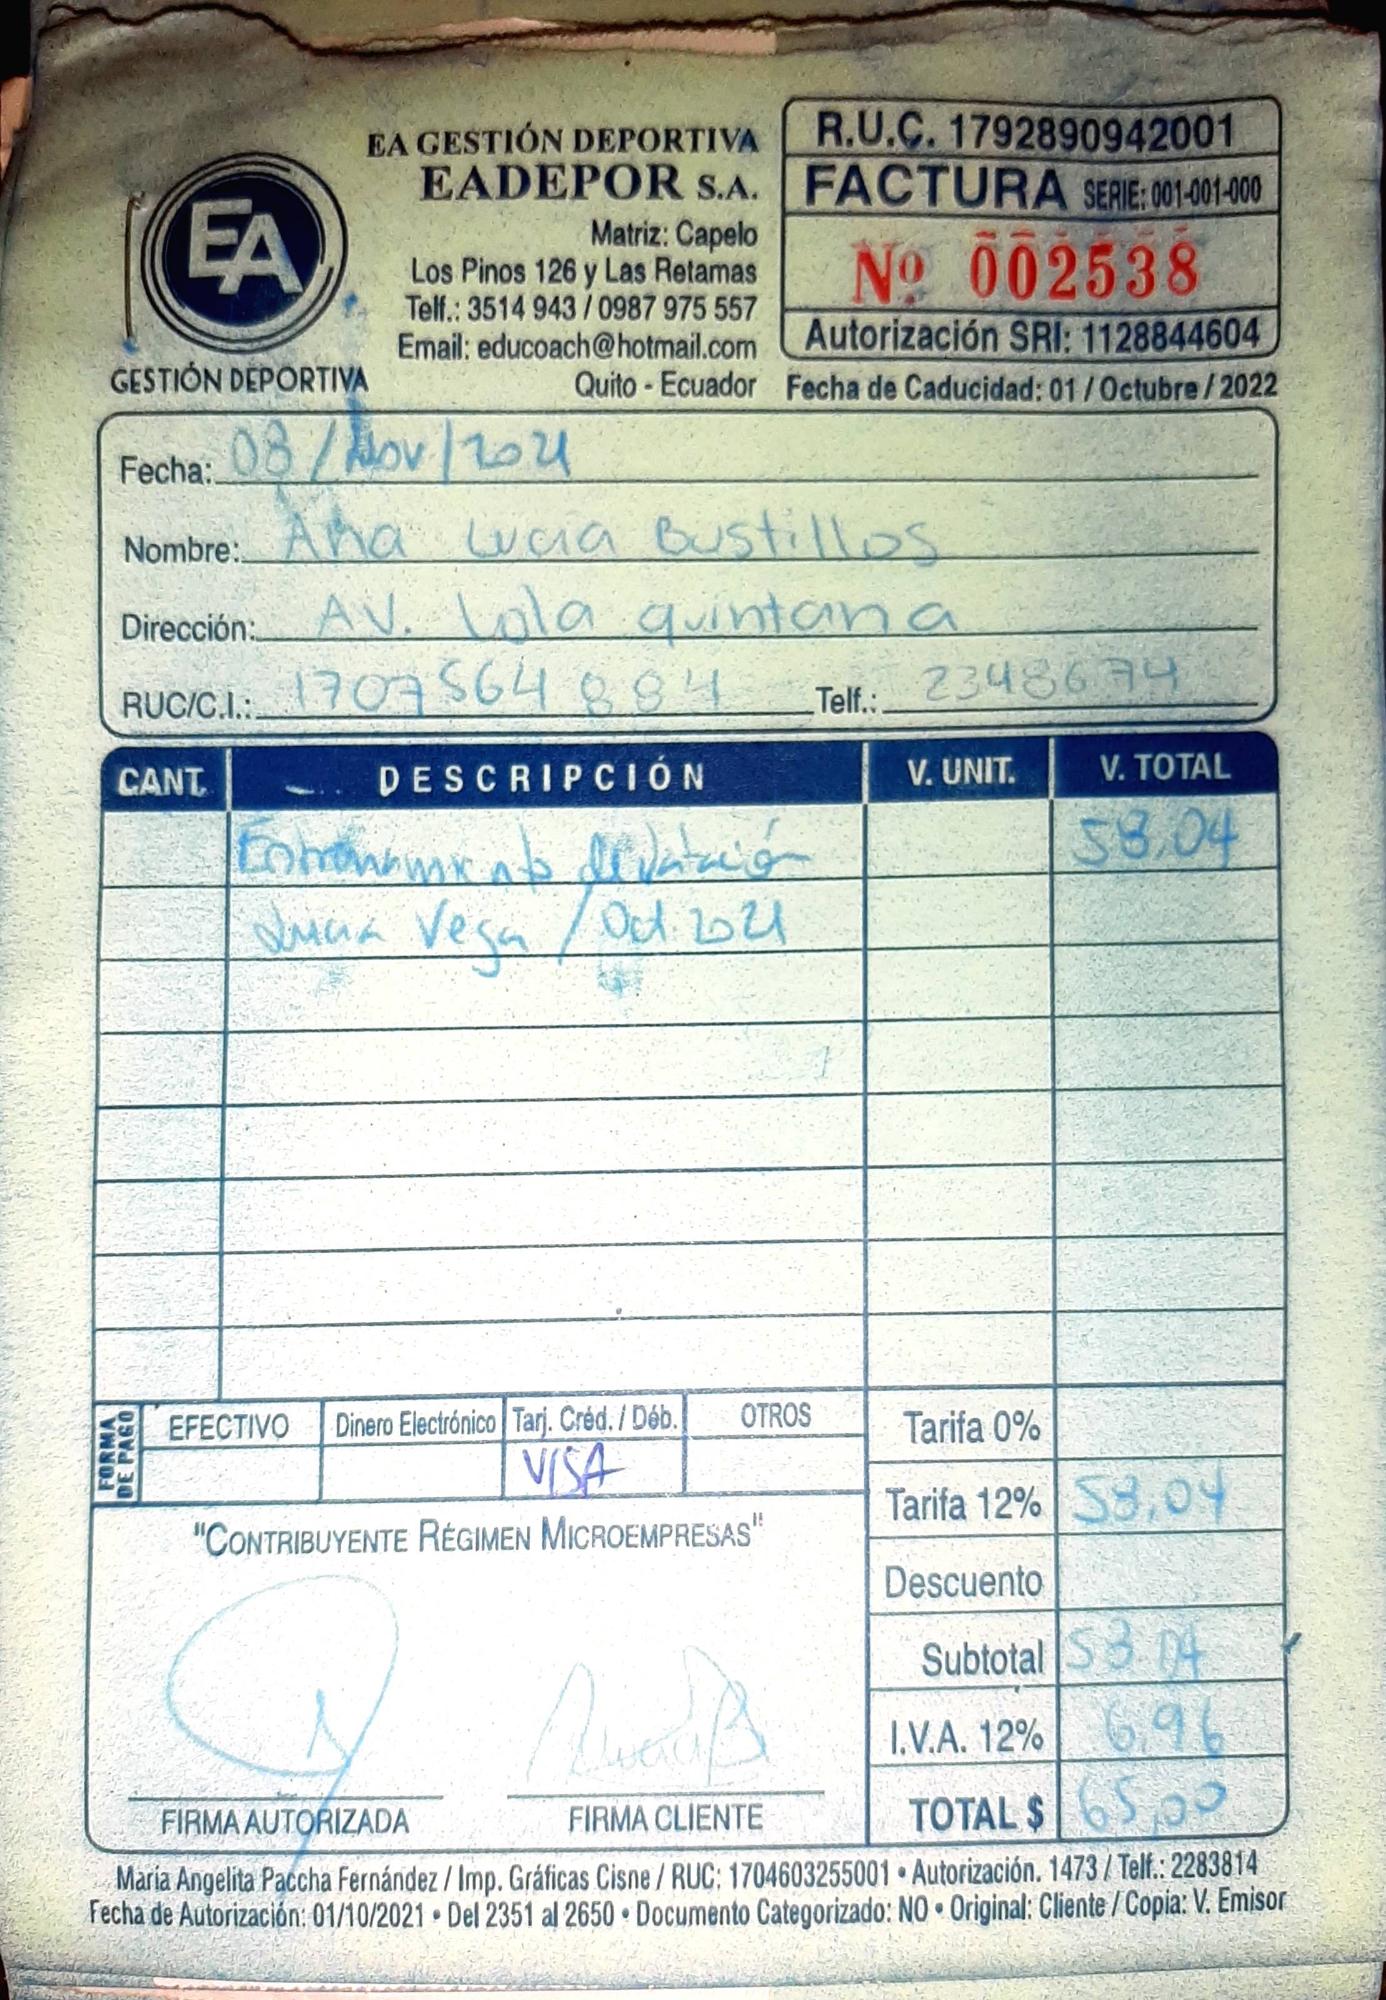 EA GESTIÓN DEPORTIVA
EADEPOR S.A.
Matriz: Capelo
Los Pinos 126 y Las Retamas
Telf.: 3514 943 / 0987 975 557
Email: educoach@hotmail.com
Quito - Ecuador
EA
GESTIÓN DEPORTIVA
R.U.C. 1792890942001
FACTURA SERIE: 001-001-000
Nº 002538
Autorización SRI: 1128844604
Fecha de Caducidad: 01 / Octubre / 2022
Fecha: 08/Nov/2021
Nombre: Ana Lucia Bustillos
Dirección: AV. Lola quintana
RUC/C.I.: 1707564884 Telf.: 2348674
CANT. DESCRIPCIÓN V. UNIT. V. TOTAL
Entrenamiento de Natación 58,04
Lucia Vega / Oct 2021
FORMA DE PAGO
EFECTIVO Dinero Electrónico Tarj. Créd. / Déb. OTROS
VISA
Tarifa 0%
Tarifa 12% 58,04
Descuento
Subtotal 58.04
I.V.A. 12% 6,96
TOTAL $ 65,00
"CONTRIBUYENTE RÉGIMEN MICROEMPRESAS"
FIRMA AUTORIZADA FIRMA CLIENTE
María Angelita Paccha Fernández / Imp. Gráficas Cisne / RUC: 1704603255001 • Autorización. 1473 / Telf.: 2283814
Fecha de Autorización: 01/10/2021 • Del 2351 al 2650 • Documento Categorizado: NO • Original: Cliente / Copia: V. Emisor